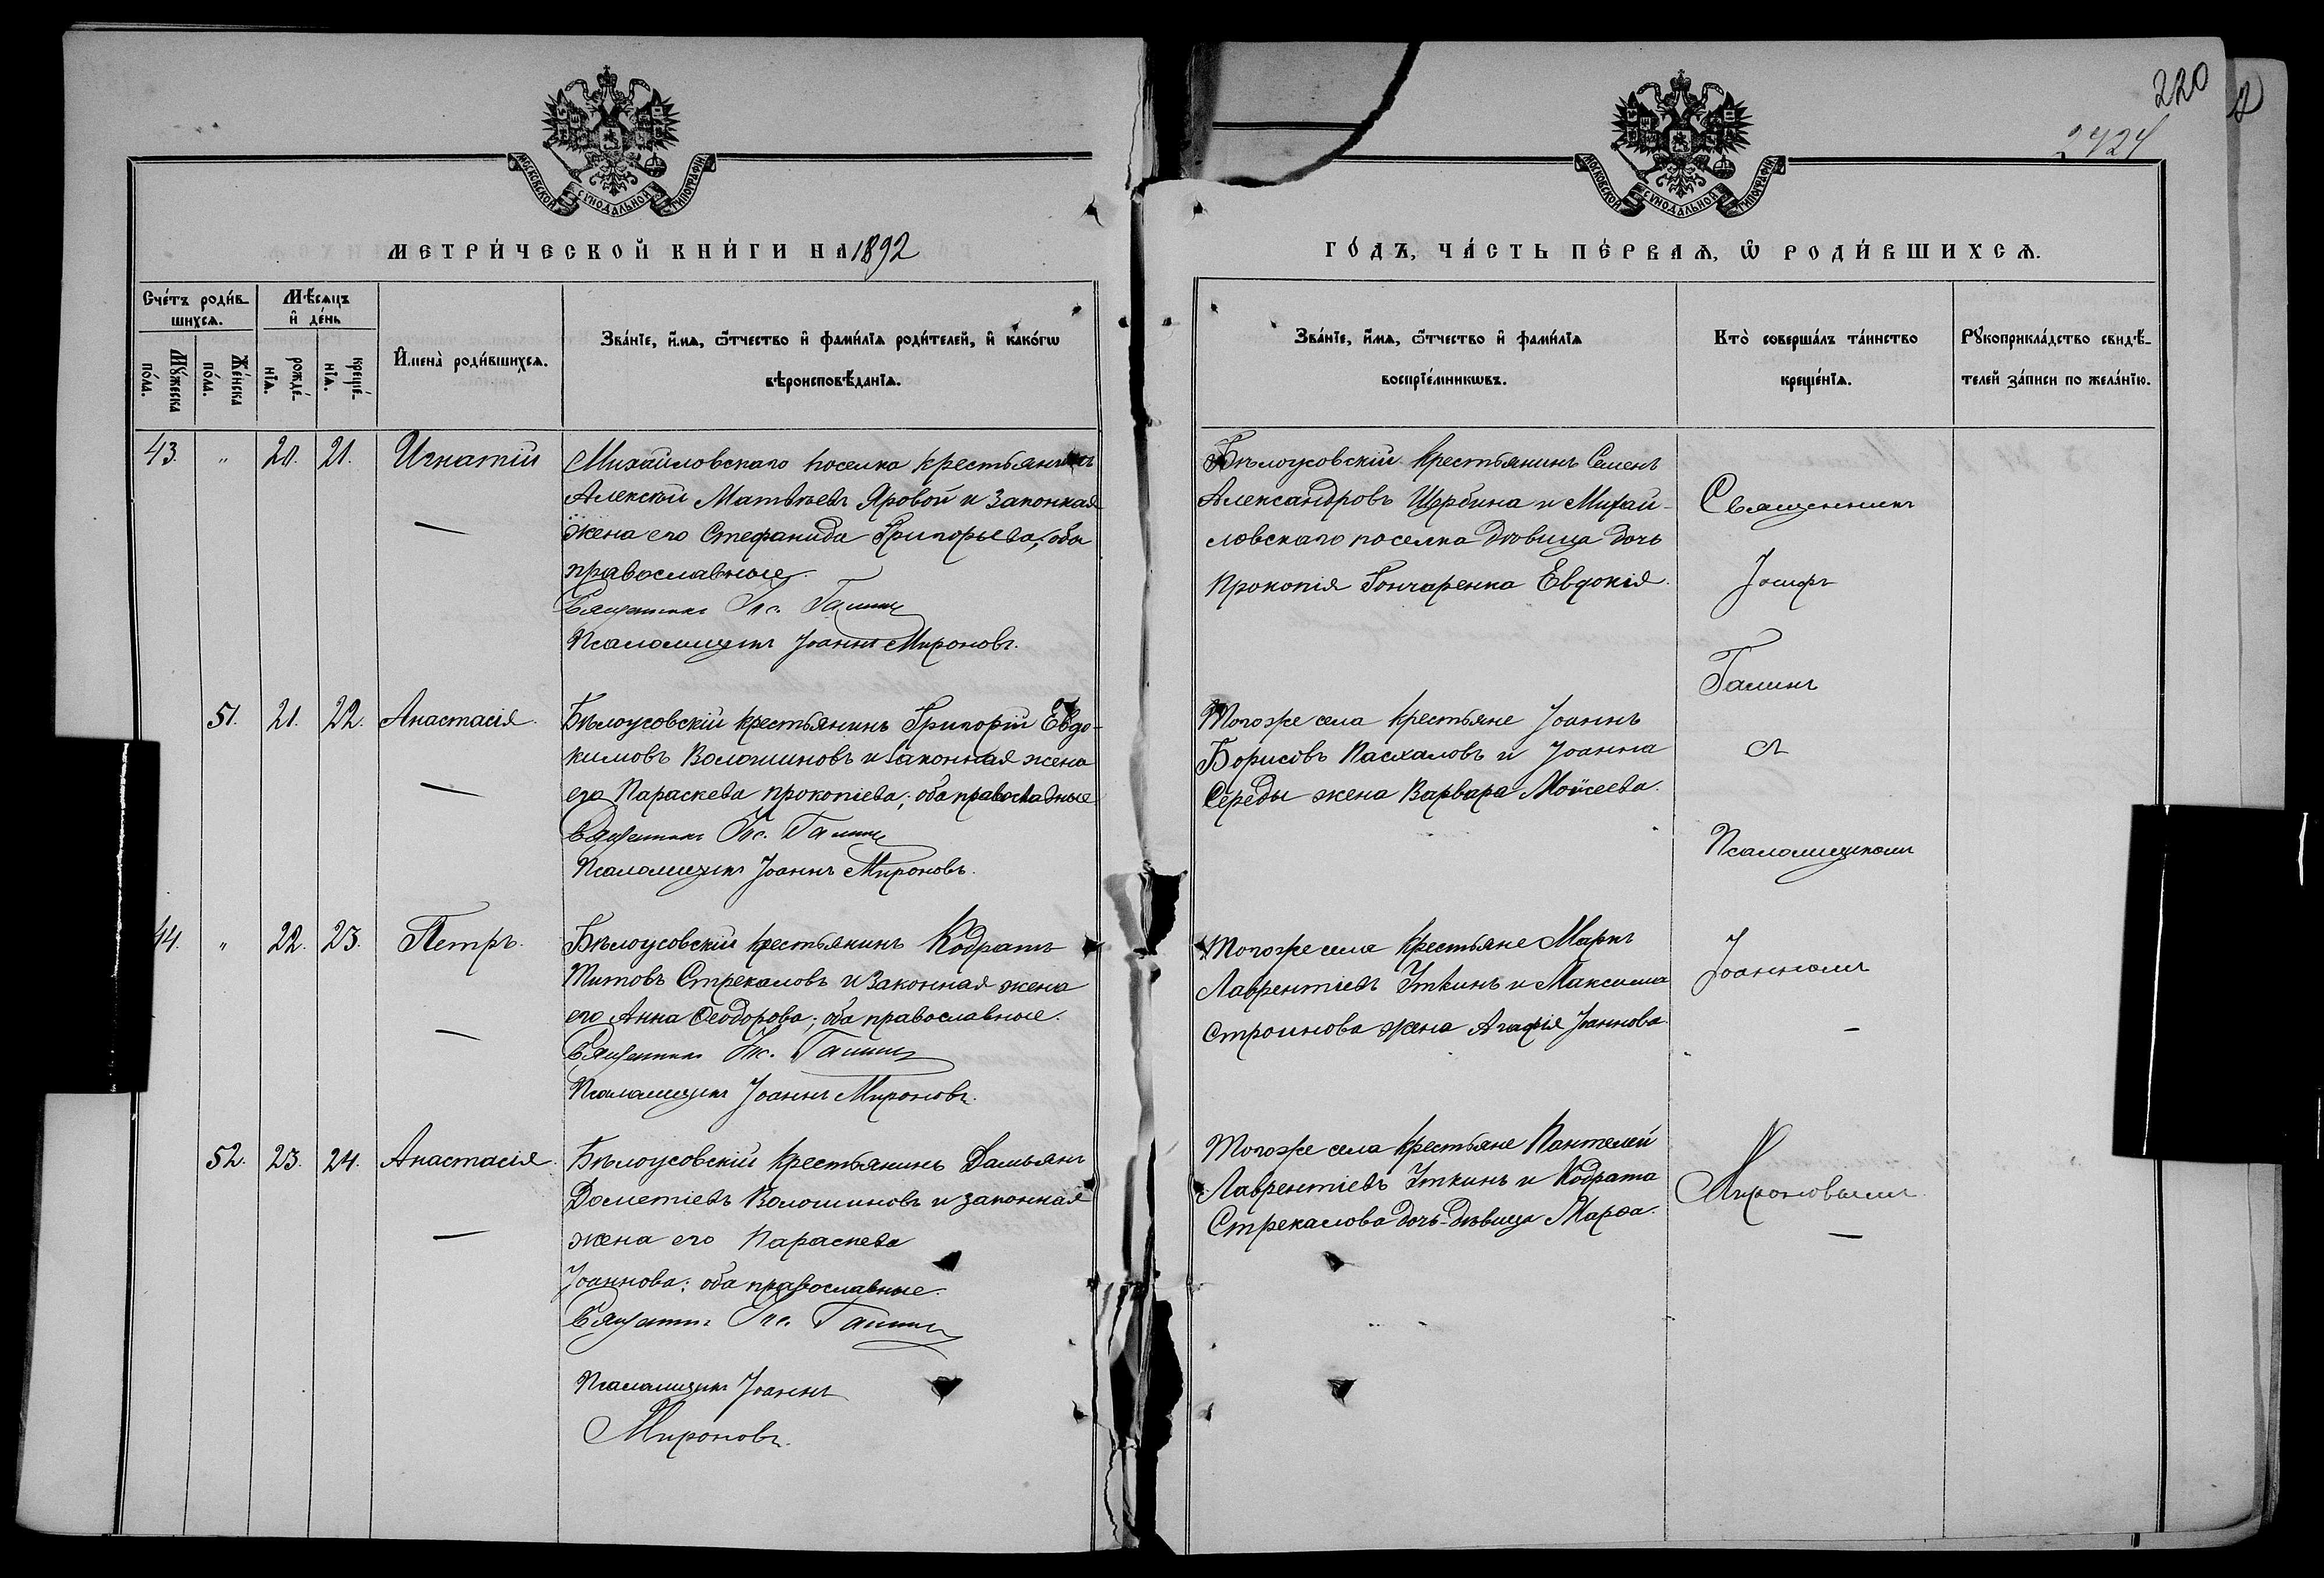 220
2424
МОСКОВСКОЙ СѴНОДАЛЬНОЙ ТИПОГРАФІИ
МОСКОВСКОЙ СѴНОДАЛЬНОЙ ТИПОГРАФІИ
МЕТРИ́ЧЕСКОЙ КНИ́ГИ НА 1892
ГО́ДЪ, ЧА́СТЬ ПЕ́РВАѦ, Ѽ РОДИ́ВШИХСѦ.
Сче́тъ роди́в-
шихсѧ.
Мѣ́сѧцъ
и҆ де́нь
Мꙋ́жеска
по́ла.
Же́нска
по́ла.
рожде́-
нїѧ.
креще́-
нїѧ.
И҆мена̀ роди́вшихсѧ.
Зва́нїе, и҆́мѧ, ѻ҆́тчество и҆ фами́лїѧ роди́телей, и҆ како́гѡ
вѣроисповѣ́данїѧ.
Зва́нїе, и҆́мѧ, ѻ҆́тчество и҆ фами́лїѧ
воспрїе́мникѡвъ.
Кто̀ соверша́лъ та́инство
креще́нїѧ.
Рꙋкоприкла́дство свидѣ́-
телей за́писи по жела́нїю.
43. " 20. 21. Игнатій
Михайловскаго поселка крестьянинъ
Алексѣй Матѳѣевъ Яровой и законная
жена его Стефанида Григорьева; оба
православные.
Священникъ Іос. Галинъ
Псаломщикъ Іоаннъ Мироновъ.
Бѣлоусовскій крестьянинъ Семенъ
Александровъ Щербина и Михай-
ловскаго поселка дѣвица дочь
Прокопія Гончаренка Евдокія.
Священникъ
Іосифъ
Галинъ
съ
Псаломщикомъ
Іоанномъ
Мироновымъ
51. 21. 22. Анастасія.
Бѣлоусовскій крестьянинъ Григорій Евдо-
кимовъ Волошиновъ и законная жена
его Параскева Прокопіева; оба православные
Священникъ Іос. Галинъ
Псаломщикъ Іоаннъ Мироновъ.
Тогоже села крестьяне Іоаннъ
Борисовъ Пасхаловъ и Іоанна
Середы жена Варвара Моисеева.
44. " 22. 23. Петръ.
Бѣлоусовскій крестьянинъ Кодратъ
Титовъ Стрекаловъ и законная жена
его Анна Ѳеодорова; оба православные.
Священникъ Іос. Галинъ
Псаломщикъ Іоаннъ Мироновъ.
Тогоже села крестьяне Маркъ
Лаврентіевъ Уткинъ и Максима
Строинова жена Агафія Іоаннова.
52. 23. 24. Анастасія.
Бѣлоусовскій крестьянинъ Дамьянъ
Дометіевъ Волошиновъ и законная
жена его Параскева
Іоаннова; оба православные.
Священникъ Іос. Галинъ
Псаломщикъ Іоаннъ
Мироновъ.
Тогоже села крестьяне Пантелей
Лаврентіевъ Уткинъ и Кодрата
Стрекалова дочь-дѣвица Марѳа.